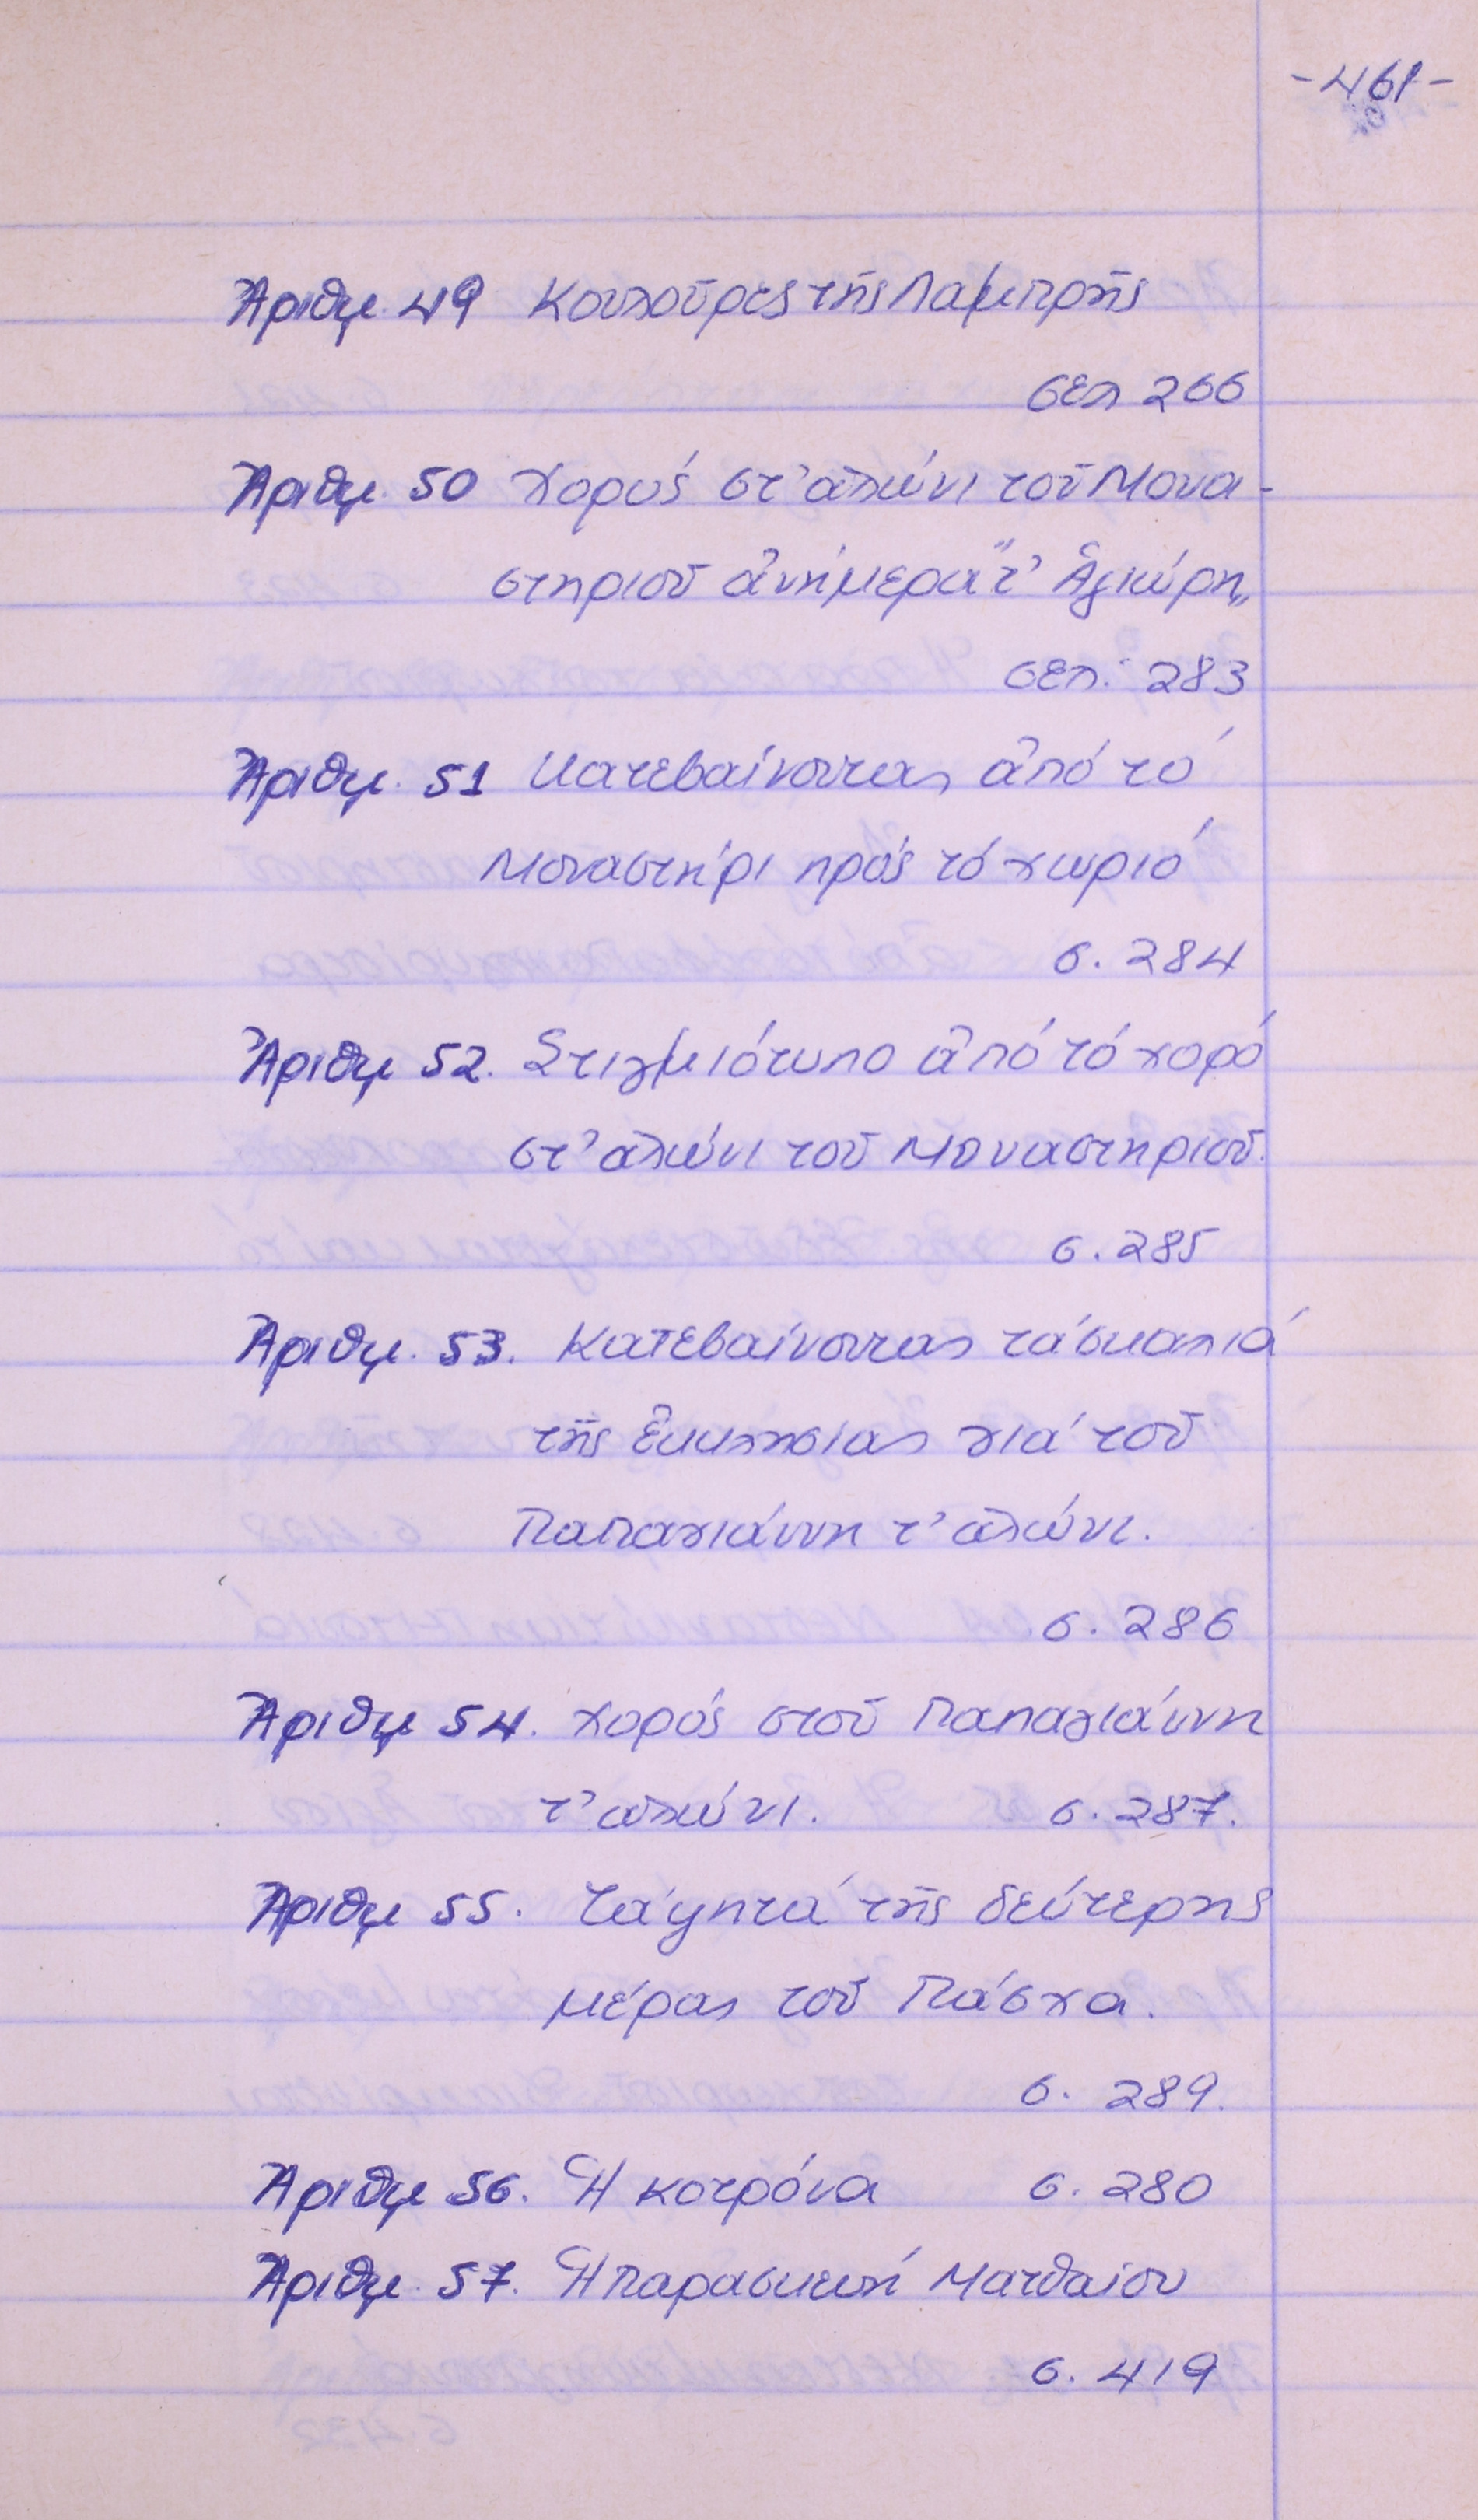 -461-
Ἀριθμ. 49 Κουλοῦρες τῆς Λαμπρῆς
σελ 266
Ἀριθμ. 50 Χορός στ' ἁλώνι τοῦ Μονα-
στηριοῦ ἀνήμερα "τ' Ἁγιώρη„
σελ. 283
Ἀριθμ. 51 Κατεβαίνοντας ἀπό τό
Μοναστήρι πρός τό χωριό
σ. 284
Ἀριθμ 52. Στιγμιότυπο ἀπό τό χορό
στ' ἁλώνι τοῦ Μοναστηριοῦ.
σ. 285
Ἀριθμ. 53. Κατεβαίνοντας τά σκαλιά
τῆς ἐκκλησίας γιά τοῦ
Παπαγιάννη τ' ἁλώνι.
σ. 286
Ἀριθμ 54. Χορός στοῦ Παπαγιάννη
τ' ἁλώνι. σ. 287.
Ἀριθμ 55. Τά ψητά τῆς δεύτερης
μέρας τοῦ Πάσχα.
σ. 289.
Ἀριθμ 56. Ἡ κοτρόνα σ. 280
Ἀριθμ. 57. Ἡ παρασκευή Ματθαίου
σ. 419